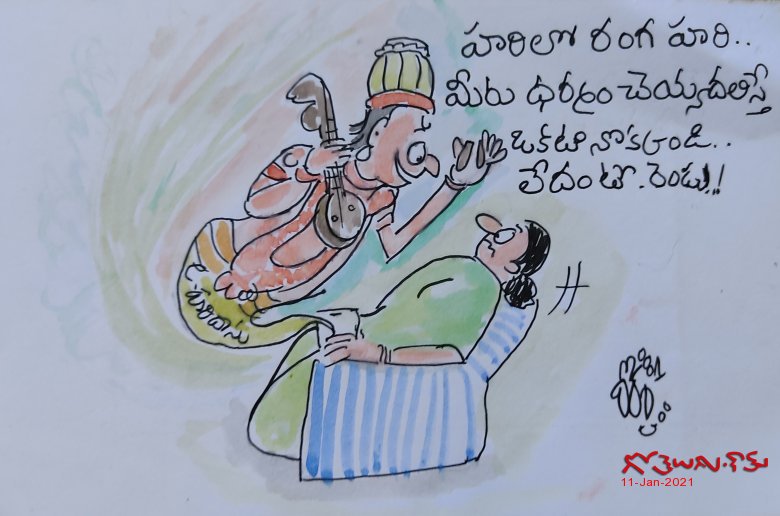 హరిలో రంగ హరి..
మీరు ధర్మం చెయ్యదలిస్తే
ఒకటి నొక్కండి..
లేదంటే. రెండు.!
గోతెలుగు.కామ్
11-Jan-2021